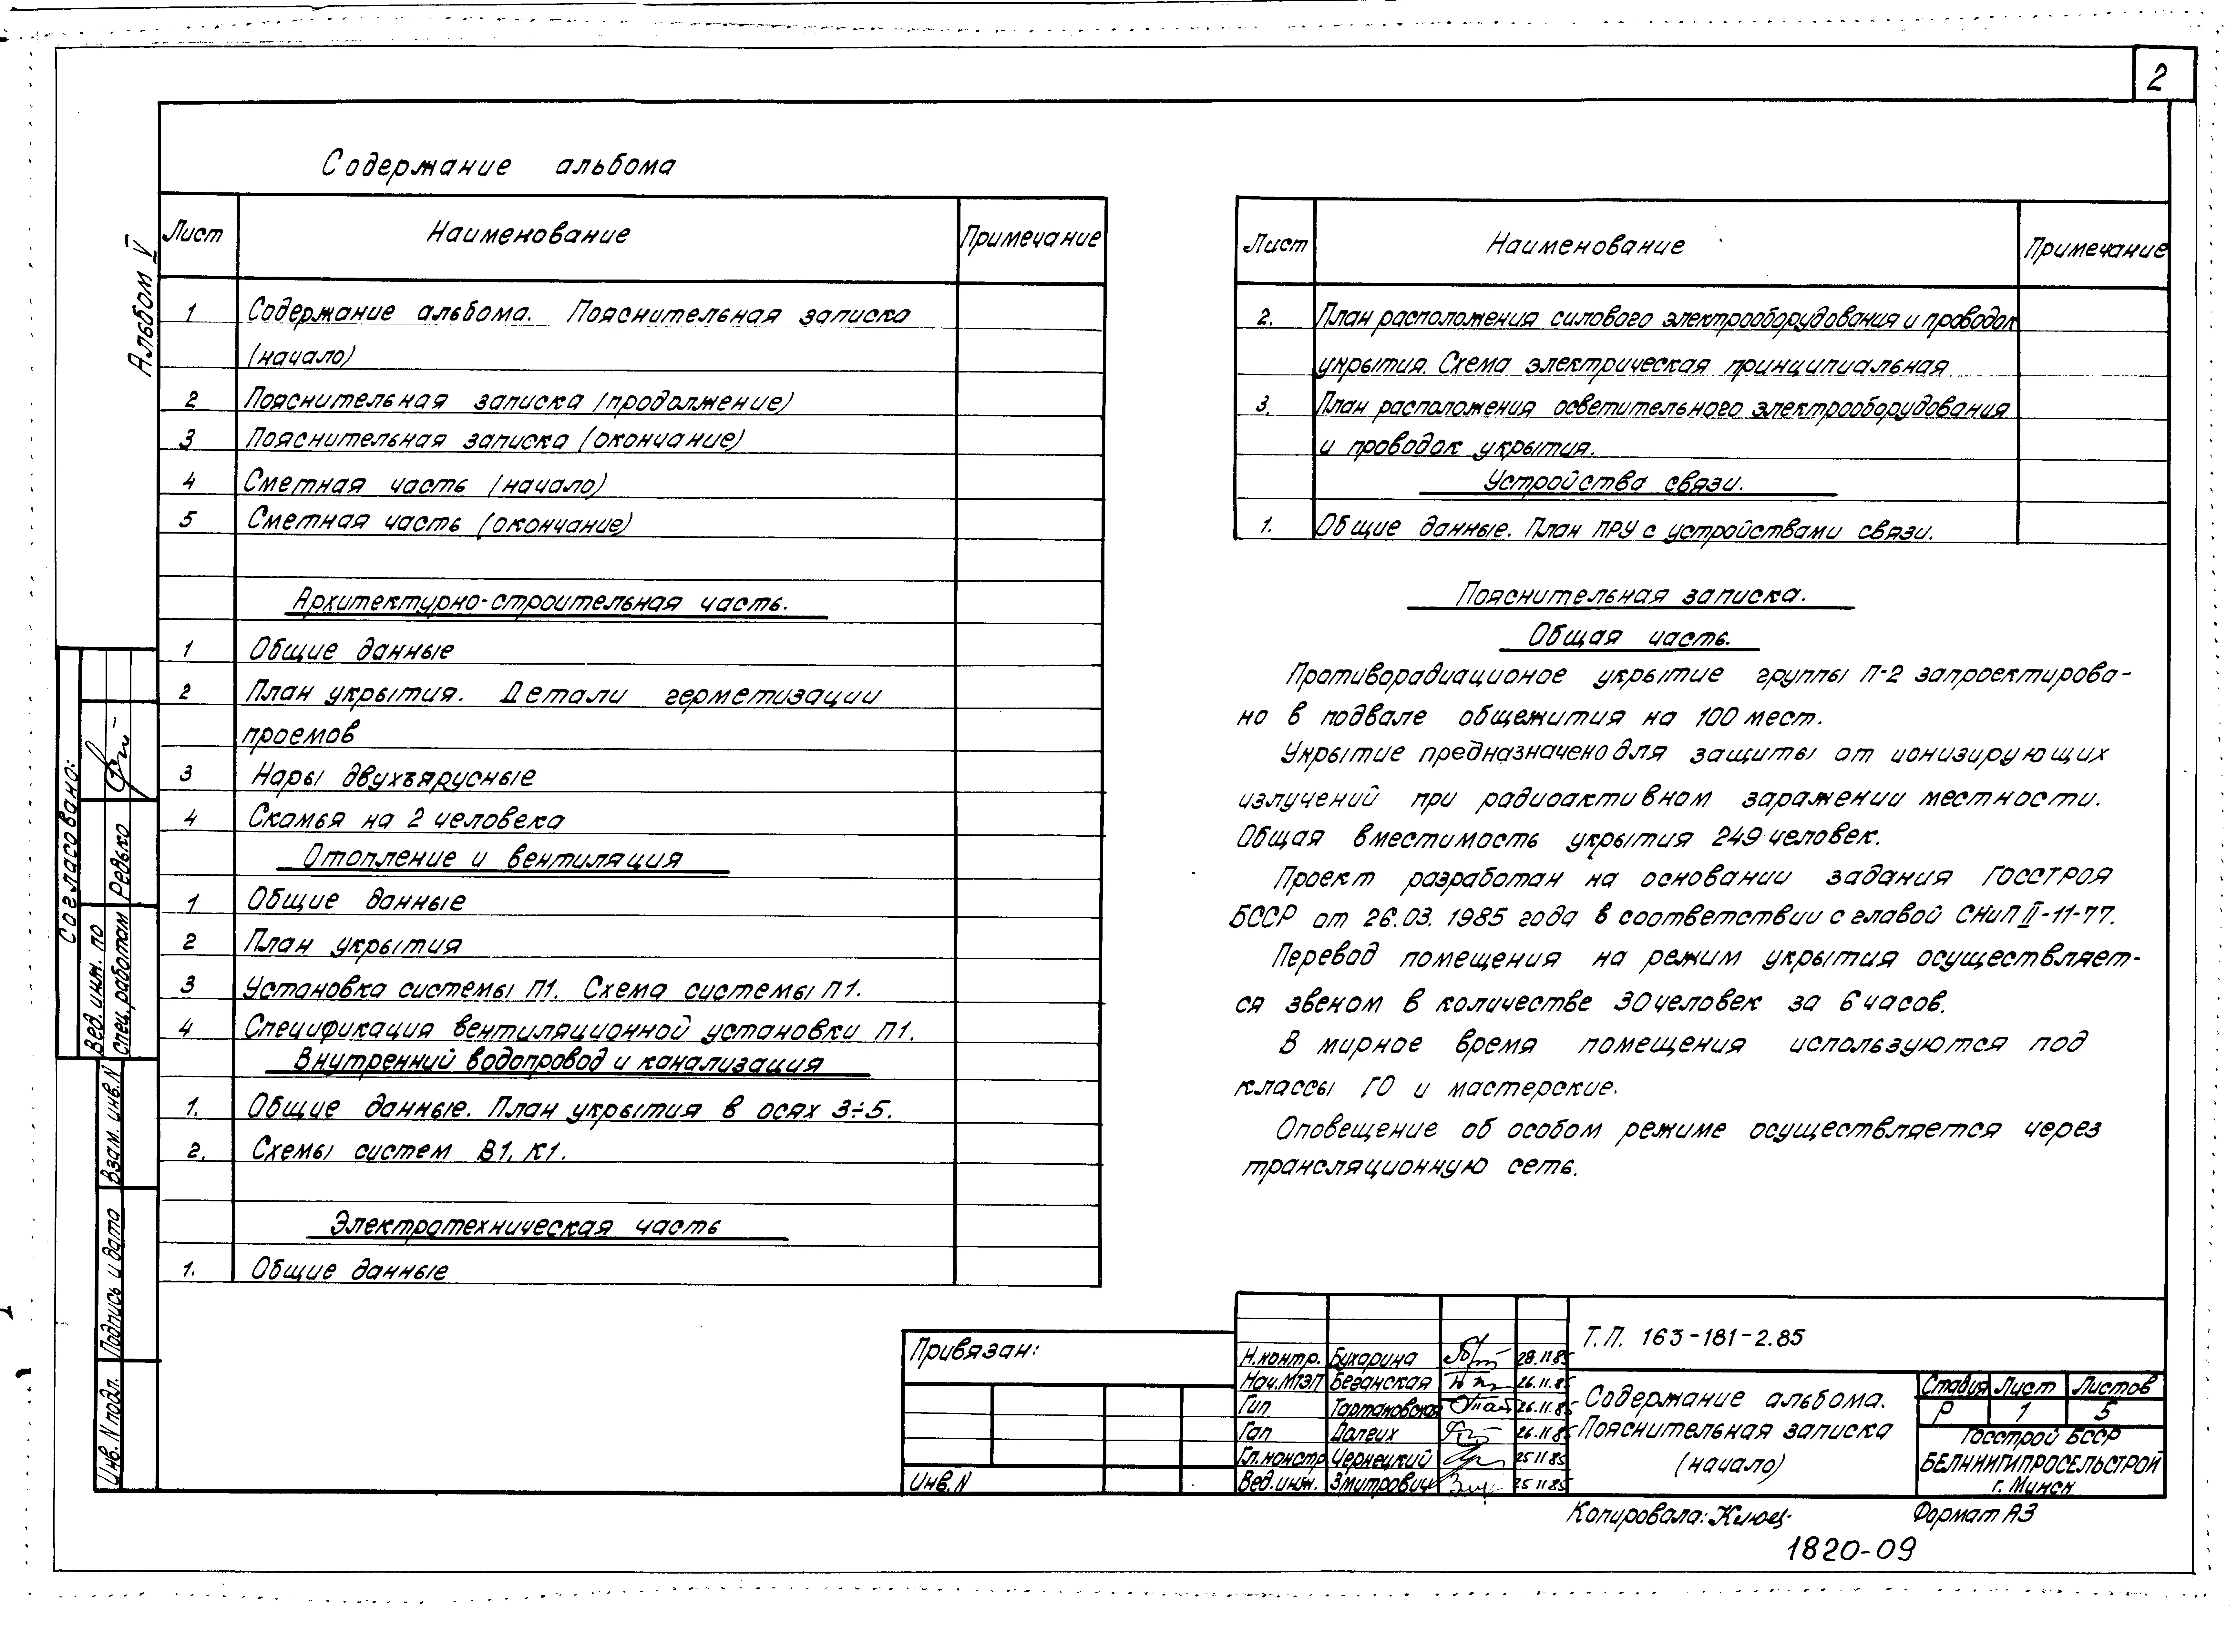 2
Содержание альбома
Альбом V
Лист Наименование Примечание
1 Содержание альбома. Пояснительная записка
(начало)
2 Пояснительная записка (продолжение)
3 Пояснительная записка (окончание)
4 Сметная часть (начало)
5 Сметная часть (окончание)
Архитектурно-строительная часть.
1 Общие данные
2 План укрытия. Детали герметизации
проемов
3 Нары двухъярусные
4 Скамья на 2 человека
Отопление и вентиляция
1 Общие данные
2 План укрытия
3 Установка системы П1. Схема системы П1.
4 Спецификация вентиляционной установки П1.
Внутренний водопровод и канализация
1. Общие данные. План укрытия в осях 3÷5.
2. Схемы систем В1, К1.
Электротехническая часть
1. Общие данные
Лист Наименование Примечание
2. План расположения силового электрооборудования и проводок
укрытия. Схема электрическая принципиальная
3. План расположения осветительного электрооборудования
и проводок укрытия.
Устройства связи.
1. Общие данные. План ПРУ с устройствами связи.
Пояснительная записка.
Общая часть.
Противорадиационое укрытие группы П-2 запроектирова-
но в подвале общежития на 100 мест.
Укрытие предназначено для защиты от ионизирующих
излучений при радиоактивном заражении местности.
Общая вместимость укрытия 249 человек.
Проект разработан на основании задания Госстроя
БССР от 26.03.1985 года в соответствии с главой СНиП II-11-77.
Перевод помещения на режим укрытия осуществляет-
ся звеном в количестве 30 человек за 6 часов.
В мирное время помещения используются под
классы ГО и мастерские.
Оповещение об особом режиме осуществляется через
трансляционную сеть.
Согласовано:
Вед. инж. по
спец. работам Редько
Взам. инв. N
Подпись и дата
Инв. N подл.
Привязан:
Инв. N
Н.контр. Бухарина 28.11.85
Нач.МТЭП Беганская 26.11.85
Гип Тартаковская 26.11.85
Гап Долеих 26.11.85
Гл.констр Чернецкий 25 11 85
Вед.инж. Змитрович 25 11 85
Т.П. 163-181-2.85
Содержание альбома.
Пояснительная записка
(начало)
Стадия Лист Листов
Р 1 5
Госстрой БССР
БЕЛНИИГИПРОСЕЛЬСТРОЙ
г. Минск
Копировала: Клюец Формат А3
1820-09